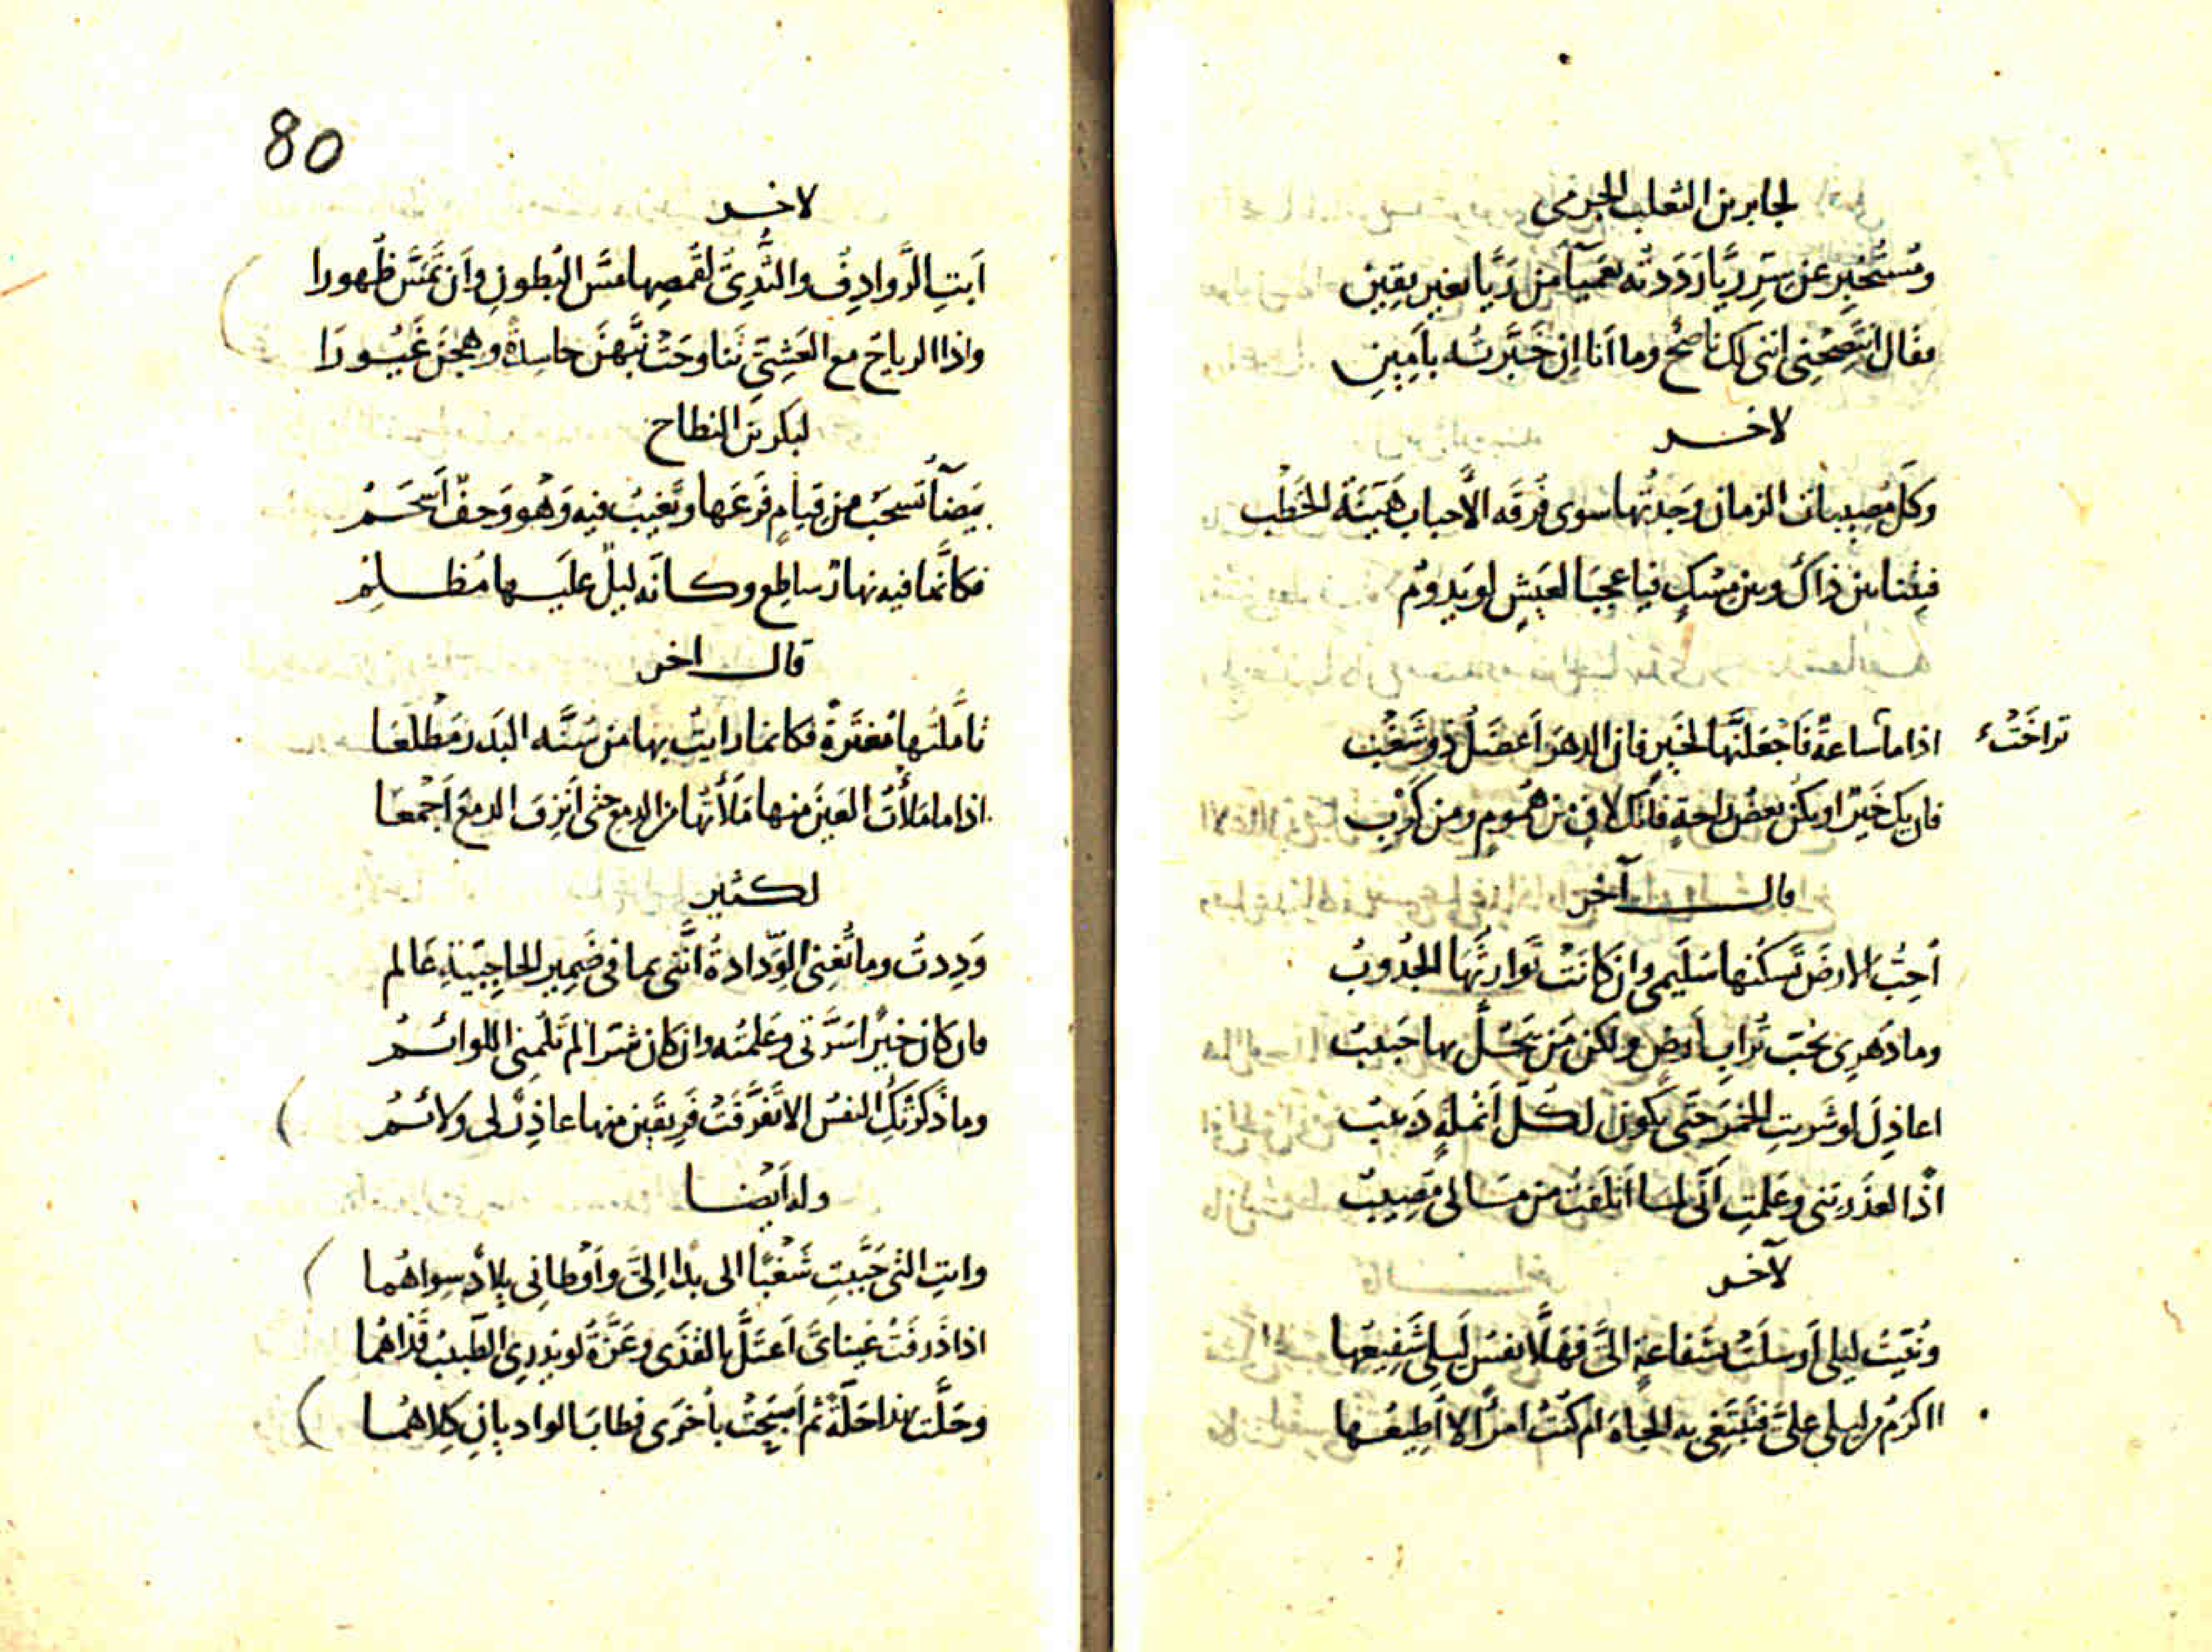 لجابر بن الثعلب الجرمى
ومُستَخبِرٍ عن سِرّ رَيَّا رَدَدتُه بعَميآ من رَيَّا بغير يقين
فقال انتَصِحْنى اننى لك ناصحٌ وما انا اِن خَبَّرتُه بأمين
لاخر
وكلّ مصيبات الزمان وجدتُها سوى فُرقه الأحباب هَيّنَة الخَطْب
اذا ما ساعةً فَاجْعَلَنَّها لخير فان الدهرَ اَعصَلُ ذو شَغْب
تراخَتْ
فان يك خَيرٌ او يكن بعضُ راحةٍ فانك لاقٍ من هُمومٍ ومن كَرْب
قال آخر
اُحِبُّ الارضَ تَسكنها سُلَيمى وان كانَتْ تَوارثُها الجُدُوبُ
وما دَهرِى بحُبّ تُرابِ أرضٍ ولكن مَن يَحُلُّ بها حَبيبُ
اعاذِلَ لو شَربتِ الخمرَ حَتّى يكون لكلّ أنملةٍ دَبيبُ
اذًا لعذَرتنى وعَلمتِ أنّى لما أتلَفتُ من مَالى مُصِيبُ
لآخر
ونُبّيتُ ليلى اَرسَلَتْ بشَفاعةٍ الىَّ فهَلَّا نفسُ لَيلى شَفِيعُها
ااكرَمُ من ليلى علىَّ فتَبتَغِى به الجاهَ ام كنتُ امرأً لا اُطِيعُها
80
لاخر
اَبَتِ الرَّوادِفُ والثُّدِىُّ لقُمصِها مَسَّ البُطونِ وأن تَمَسَّ ظُهورا
واذا الرياحُ مع العَشِىّ تَناوحَتْ نَبَّهنَ حاسِدةً وهِجنَ غَيُورَا
لبكر بن النطاح
بيضآُ تَسحَبُ من قيامٍ فَرعَها وتَغِيبُ فيه وَهْو وَحفٌ اَسحَمُ
فكانَّها فيه نهارٌ ساطِع وكانّه ليلٌ عليها مُظلِمُ
قال اخر
تاَمَّلتُها مُغتَرّةً فكانما رايتُ بها من سُنَّه البَدرِ مَطْلَعَا
اذا ما مَلأتُ العَينَ منها مَلأتُها من الدمع حتى اَنزِفَ الدمعَ اَجْمَعَا
لكثير
وَدِدتُ وما تُغنِى الوِدادةُ انَّنى بما فى ضَمِير الحاجبيّةِ عَالم
فان كان خيرًا سَرَّنى وعَلِمتُه وان كان شرًا لم تَلُمنِى اللوائمُ
وما ذَكرَتكِ النفسُ الا تَفرَّقَتْ فَرِيقَين منها عاذِرٌ لى ولائمُ
وله اَيضا
وانتِ التى حَبَّبتِ شَغْبًا الى بدا اِلىَّ وأوطانى بِلادٌ سِواهُما
اذا ذَرفَتْ عَيناىَ اَعتَلُّ بالقَذَى وعَزَّةُ لو يَدرِى الطَّبيبُ قَذَاهُما
وحَلَّت بهذا حَلَّةً ثم أصبَحَتْ بأخرَى فطابَ الواديانِ كِلاهُما